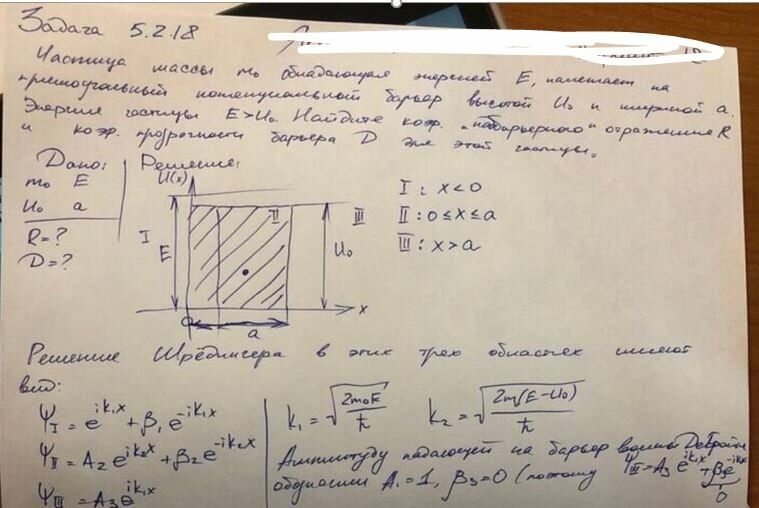 Задача 5.2.18
Частица массы m₀ обладающая энергией E, налетает на
прямоугольный потенциальный барьер высотой U₀ и шириной a.
Энергия частицы E>U₀. Найдите коэф. "надбарьерного" отражения R
и коэф. прозрачности барьера D для этой частицы.
Дано: Решение:
m₀ E
U₀ a
R=?
D=?
U(x)
I
E
II
III
U₀
x
0
a
I : x<0
II : 0≤x≤a
III : x>a
Решение Шрёдингера в этих трех областях имеют
вид:
Ψ_I = e^{ik₁x} + β₁e^{-ik₁x}
Ψ_II = A₂e^{ik₂x} + β₂e^{-ik₂x}
Ψ_III = A₃e^{ik₁x}
k₁ = √(2m₀E/ħ) k₂ = √(2m(E-U₀)/ħ)
Амплитуду падающей на барьер волны ДеБройля
обозначим A₁=1, β₃=0 (поэтому Ψ_III=A₃e^{ik₁x}+β₃e^{-ik₁x}
0